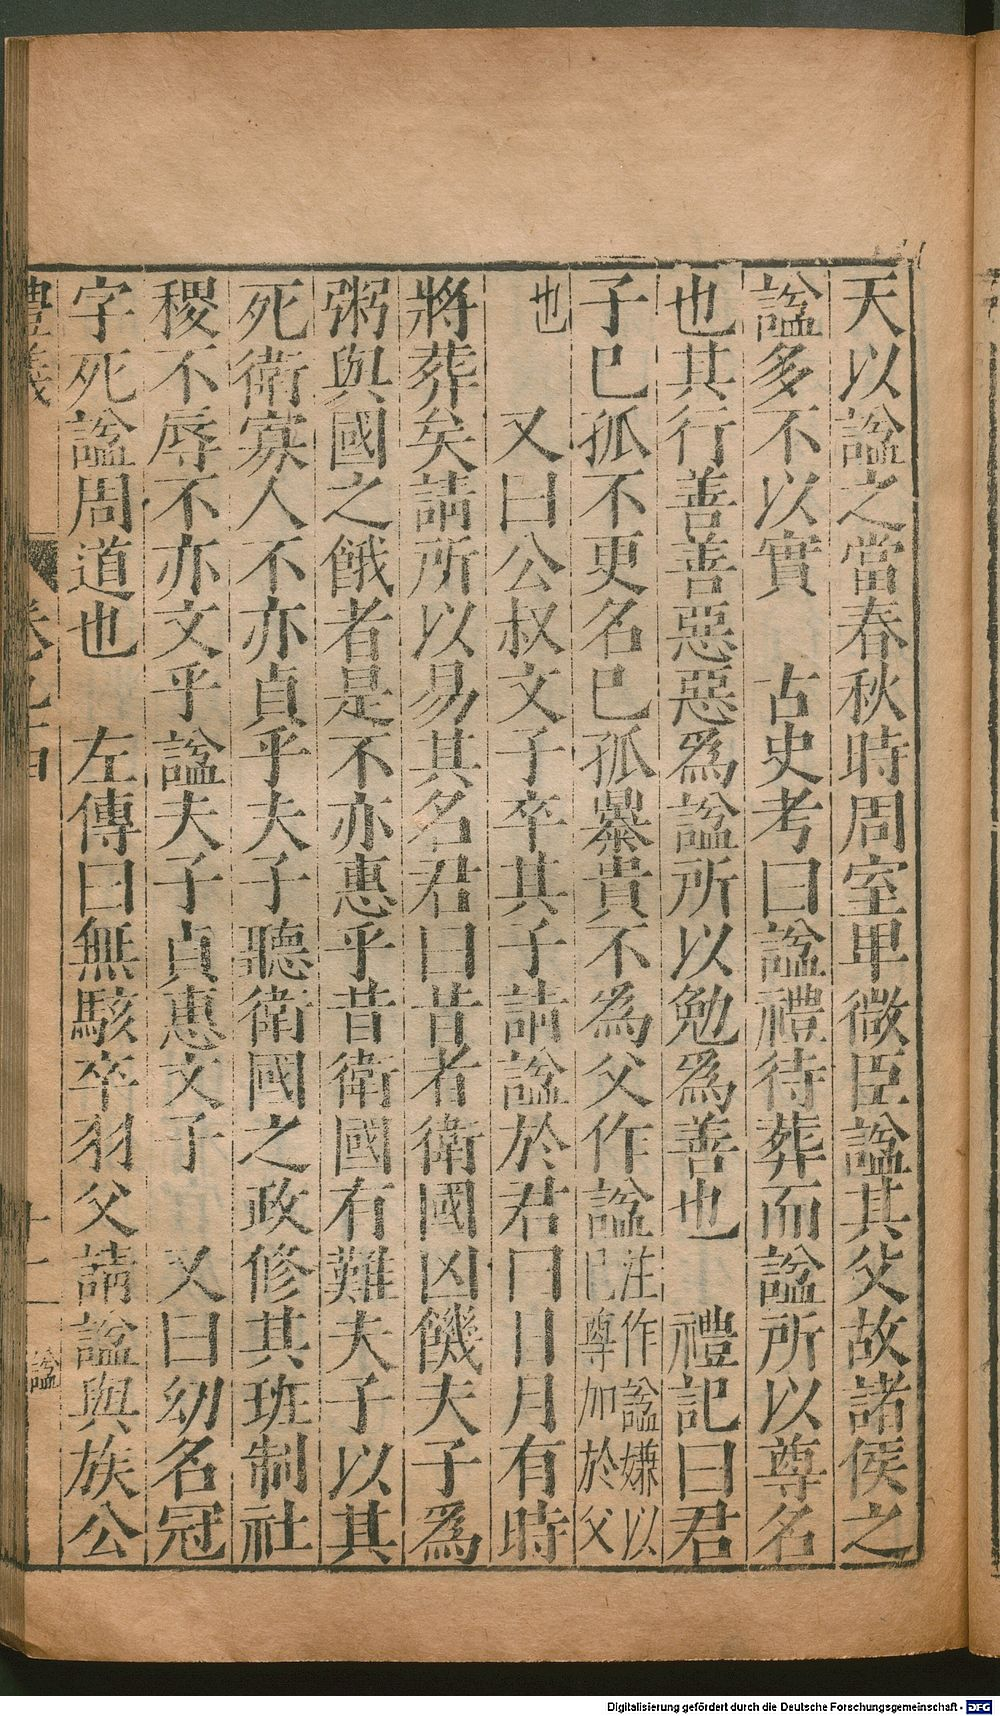 天以諡之當春秋時周室卑微臣諡其父故諸侯之
諡多不以實　古史考曰諡禮待葬而諡所以尊名
也其行善善惡惡爲諡所以勉爲善也　禮記曰君
子已孤不更名已孤暴貴不爲父作諡注作諡嫌以
已尊加於父
也　又曰公叔文子卒其子請諡於君曰日月有時
將葬矣請所以易其名君曰昔者衛國凶饑夫子爲
粥與國之餓者是不亦惠乎昔衛國有難夫子以其
死衛寡人不亦貞乎夫子聽衛國之政修其班制社
稷不辱不亦文乎諡夫子貞惠文子　又曰幼名冠
字死諡周道也　左傳曰無駭卒羽父請諡與族公
十一
諡
Digitalisierung gefördert durch die Deutsche Forschungsgemeinschaft - DFG